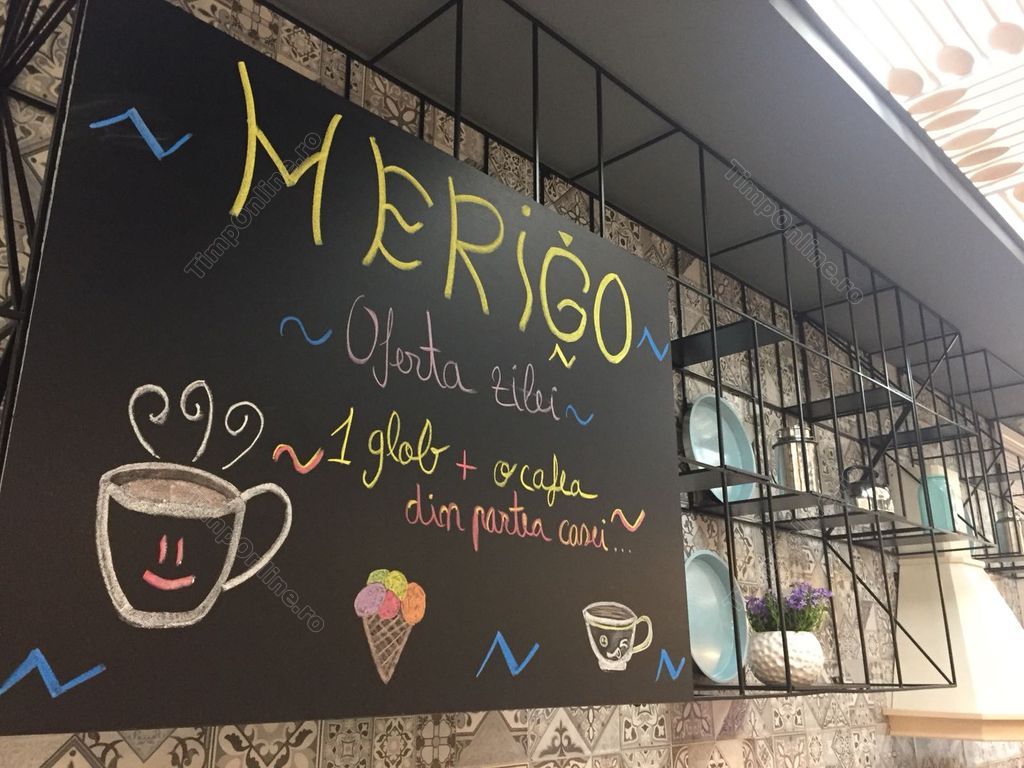 MERIGO
Oferta zilei
1 glob + o cafea
din partea casei...
TimpOnline.ro
TimpOnline.ro
TimpOnline.ro